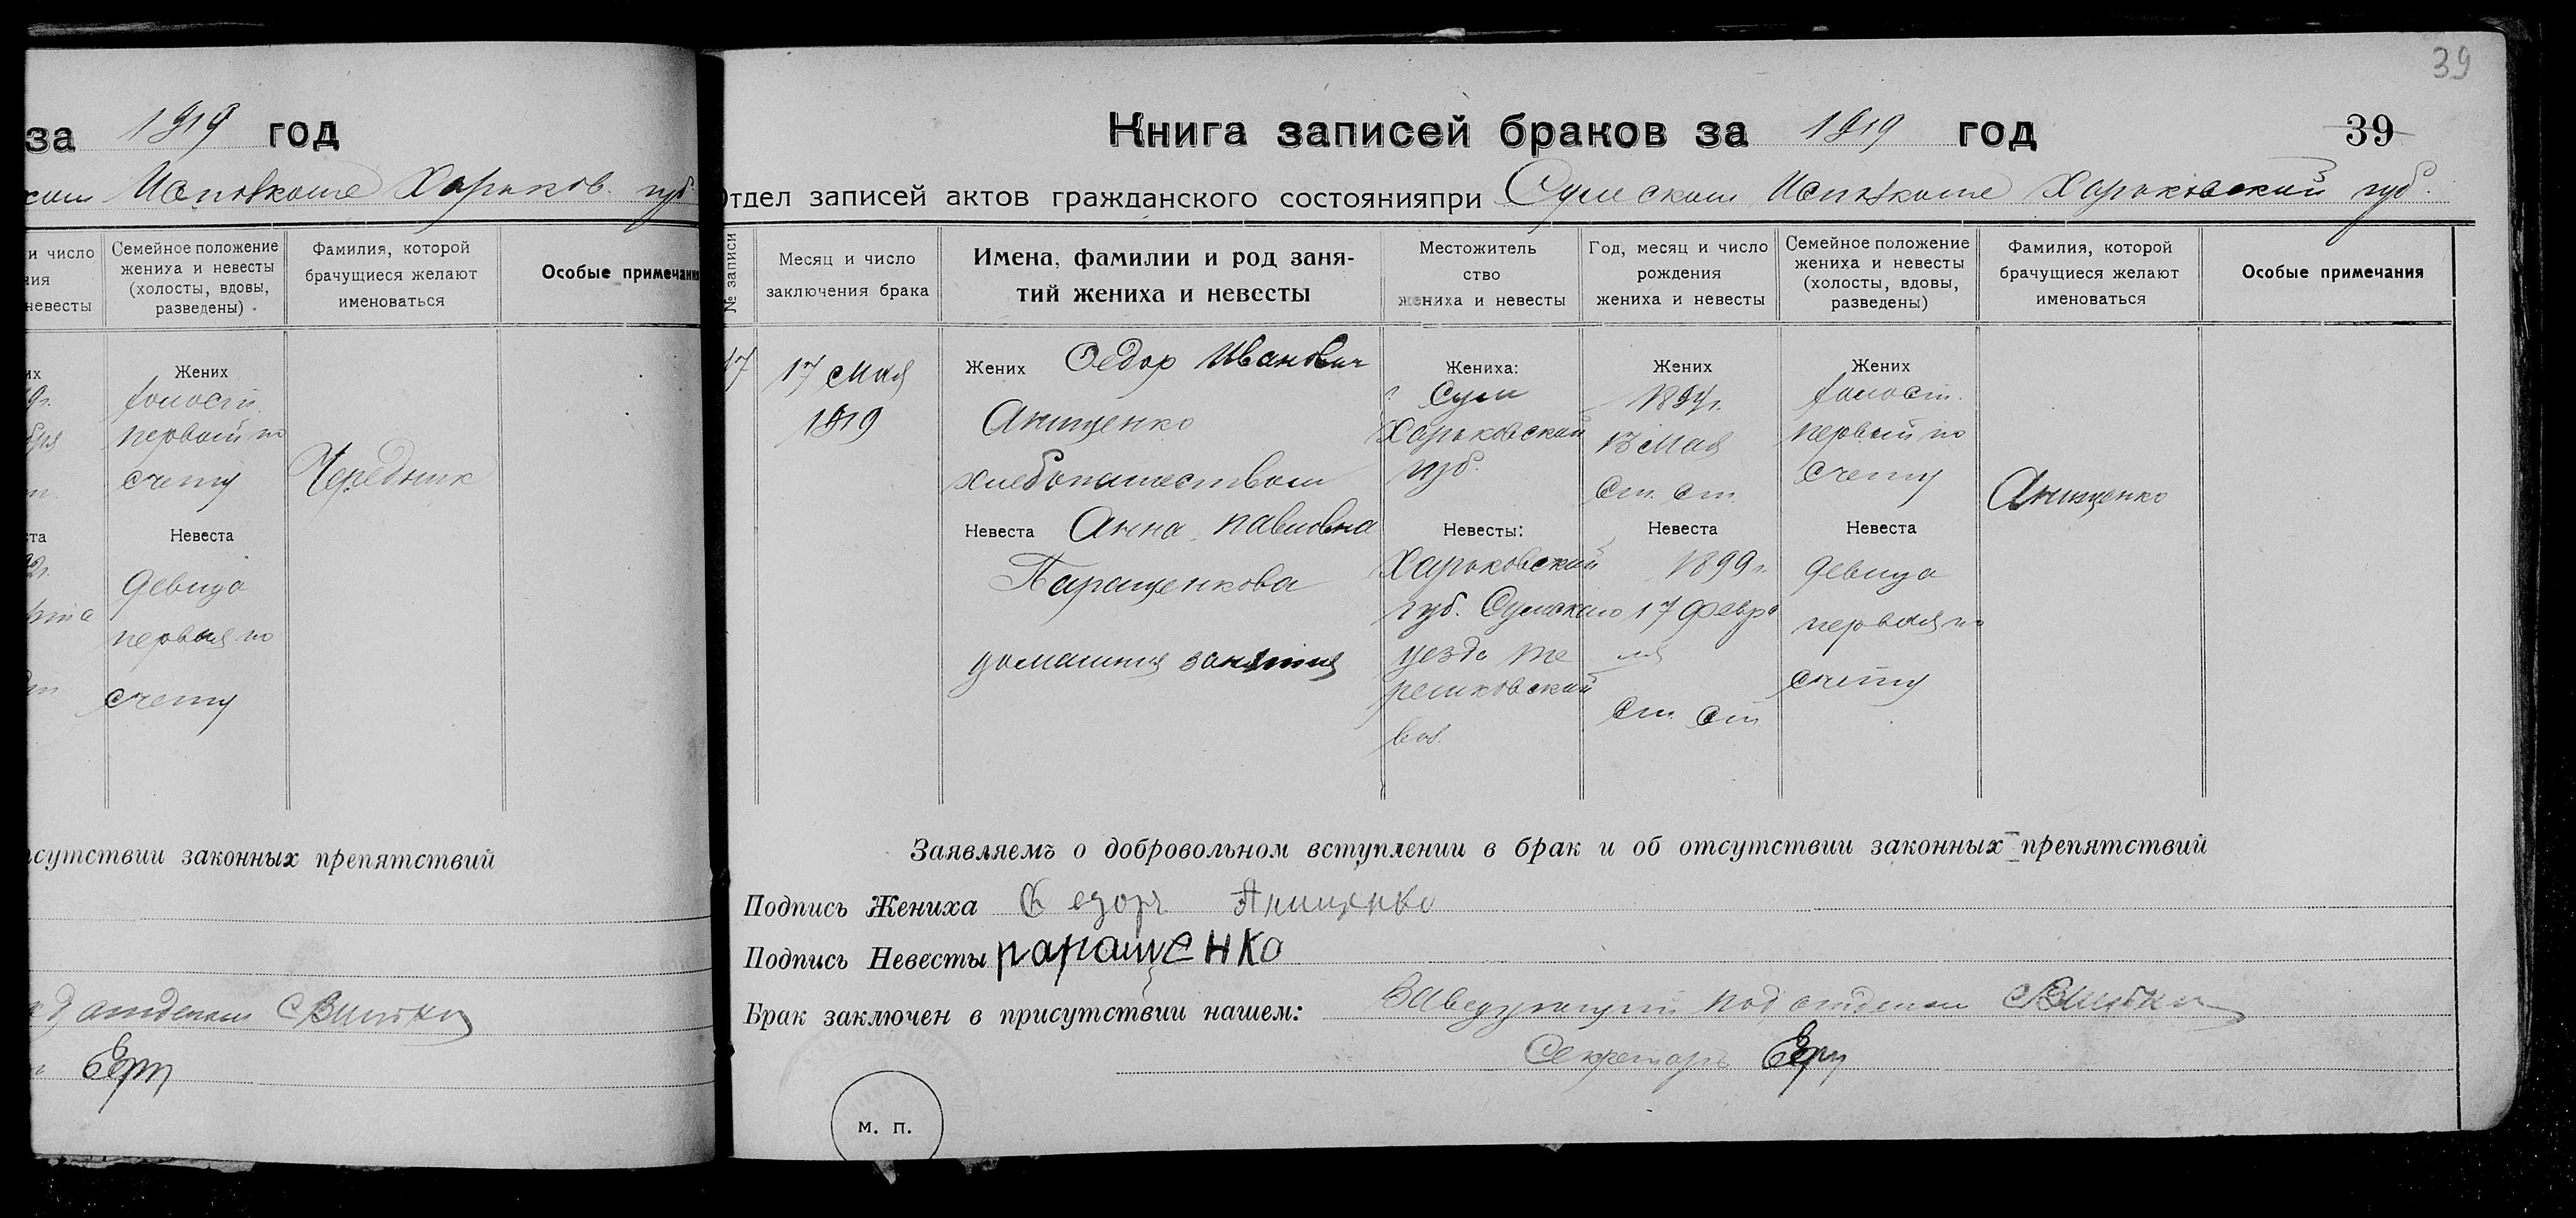 за 1919 год
ком Исполкоме Харьков. губ.
и число
ния
невесты
Семейное положение
жениха и невесты
(холосты, вдовы,
разведены)
Фамилия, которой
брачущиеся желают
именоваться
Особые примечания
Жених
холост.
первый по
счету
Чередник
Невеста
девица
первая по
счету
сутствии законных препятствий
отделом
39
Книга записей браков за 1919 год
39
Отдел записей актов гражданского состоянияпри Сумском Исполкоме Харьковской губ.
№ записи
Месяц и число
заключения брака
Имена, фамилии и род заня-
тий жениха и невесты
Местожитель
ство
жениха и невесты
Год, месяц и число
рождения
жениха и невесты
Семейное положение
жениха и невесты
(холосты, вдовы,
разведены)
Фамилия, которой
брачущиеся желают
именоваться
Особые примечания
17
17 Мая
1919
Жених Федор Иванович
Анищенко
хлебопашеством
Невеста Анна Павловна
Паращенкова
домашния занятия
Жениха:
г Сум
Харьковской
губ.
Невесты:
Харьковской
губ. Сумского
уезда Те
решковской
вол.
Жених
1894г.
13 Мая
ст. ст.
Невеста
1899г.
17 Февра
ля
ст. ст.
Жених
холост.
первый по
счету
Невеста
девица
первая по
счету
Анищенко
Заявляемъ о добровольном вступлении в брак и об отсутствии законных препятствий
Подпись Жениха Федоръ Анищенко
Подпись Невесты паращенко
Брак заключен в присутствии нашем: Заведующий подотделом
Секретарь
м. п.